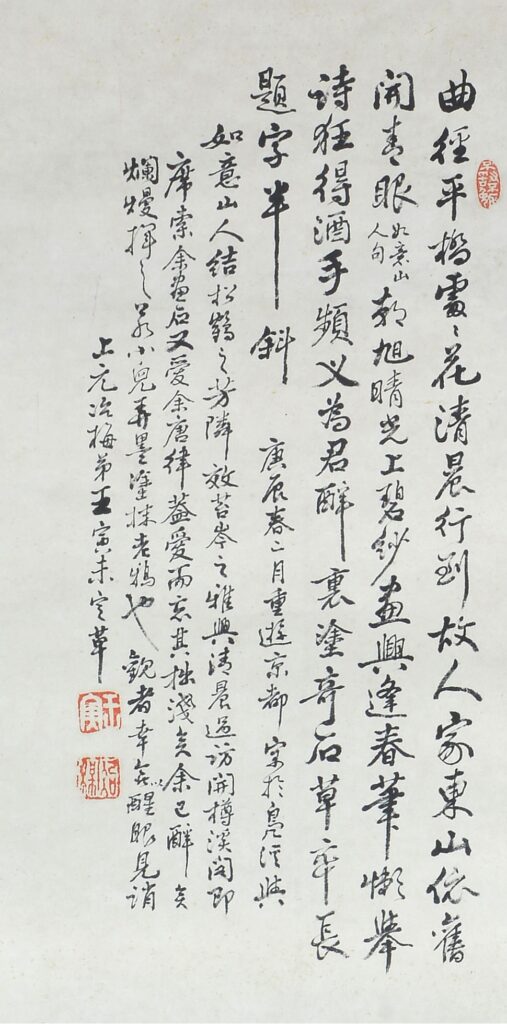 曲徑平橋處〻花清晨行到故人家東山依舊
開青眼如意山人句朝旭晴光上碧紗畫興逢春筆懶舉
詩狂得酒手頻叉為君醉裏塗奇石草率長
題字半斜 庚辰春二月重遊京都寓於鳧涯與
如意山人結松鶴之芳隣效苔岑之雅興清晨過訪開樽談閣即
席索余畫石又愛余唐律蓋愛而忘其拙淺矣余已醉矣
爛熳揮之若小兒弄墨塗抹老鴉也觀者幸無以醒眼見誚
上元冶梅弟王寅未定草
王寅
冶梅